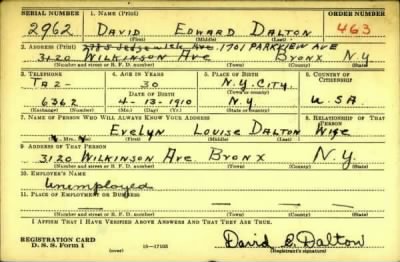 SERIAL NUMBER 1. NAME (Print) ORDER NUMBER
2962 DAVID EDWARD DALTON 463
(First) (Middle) (Last)
2. ADDRESS (Print) Ave. 1701 PARKVIEW AVE
3120 WILKINSON AVE BRONX N.Y.
(Number and street or R. F. D. number) (Town) (County) (State)
3. TELEPHONE 4. AGE IN YEARS 5. PLACE OF BIRTH 6. COUNTRY OF CITIZENSHIP
TA 2- 30 N.Y. CITY.
DATE OF BIRTH (Town or county)
6362 4-13-1910 N.Y. U.S.A.
(Exchange) (Number) (Mo.) (Day) (Yr.) (State or country)
7. NAME OF PERSON WHO WILL ALWAYS KNOW YOUR ADDRESS 8. RELATIONSHIP OF THAT PERSON
EVELYN LOUISE DALTON WIFE
(First) (Middle) (Last)
9. ADDRESS OF THAT PERSON
3120 WILKINSON AVE BRONX N.Y.
(Number and street or R. F. D. number) (Town) (County) (State)
10. EMPLOYER'S NAME
Unemployed
11. PLACE OF EMPLOYMENT OR BUSINESS
(Number and street or R. F. D. number) (Town) (County) (State)
I AFFIRM THAT I HAVE VERIFIED ABOVE ANSWERS AND THAT THEY ARE TRUE.
REGISTRATION CARD
D. S. S. Form 1 (over) 16-17105 David E. Dalton
(Registrant's signature)